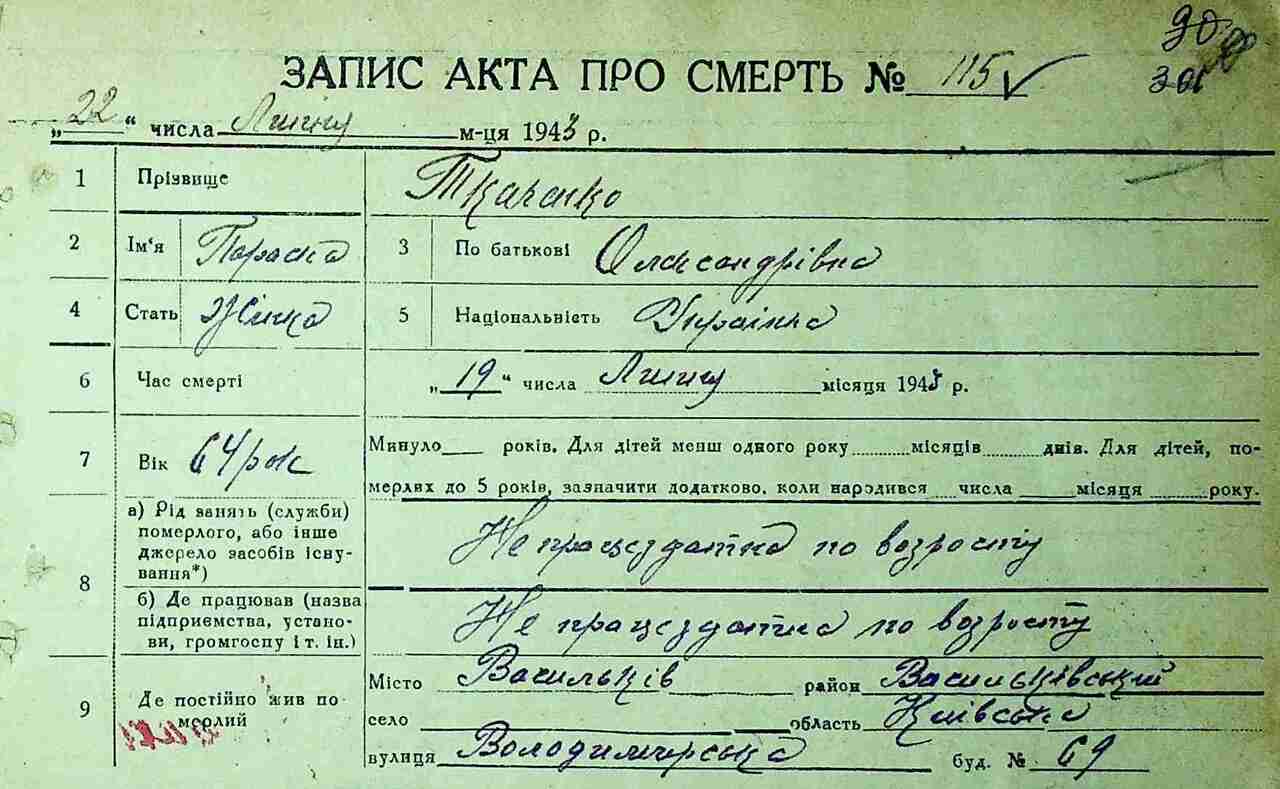 90
ЗАПИС АКТА ПРО СМЕРТЬ № 115
„22“ числа Липня м-ця 1943 р.
1 Прізвище Ткаченко
2 Ім‘я Параска 3 По батькові Олександрівна
4 Стать Жінка 5 Національність Українка
6 Час смерті „19“ числа Липня місяця 1943 р.
7 Вік 64 рок Минуло років. Для дітей менш одного року місяців днів. Для дітей, по-
мерлих до 5 років, зазначити додатково, коли народився числа місяця року.
8 а) Рід занять (служби)
померлого, або інше
джерело засобів існу-
вання*) Не працездатна по возрасту
б) Де працював (назва
підприємства, устано-
ви, громгоспу і т. ін.) Не працездатна по возрасту
9 Де постійно жив по
мерлий
Місто Васильків район Васильківський
село область Київська
вулиця Володимирська буд. № 69